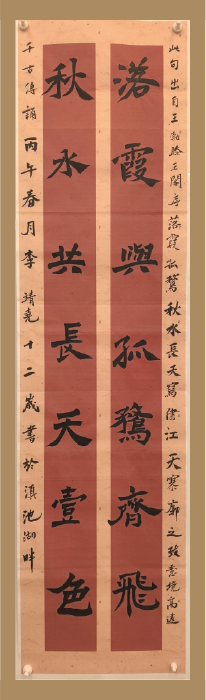 此句出自王勃滕王閣序落霞孤鶩秋水長天寫盡江天寥廓之致意境高遠
落霞與孤鶩齊飛
秋水共長天壹色
千古傳誦丙午春月李靖堯十二歲書於滇池湖畔